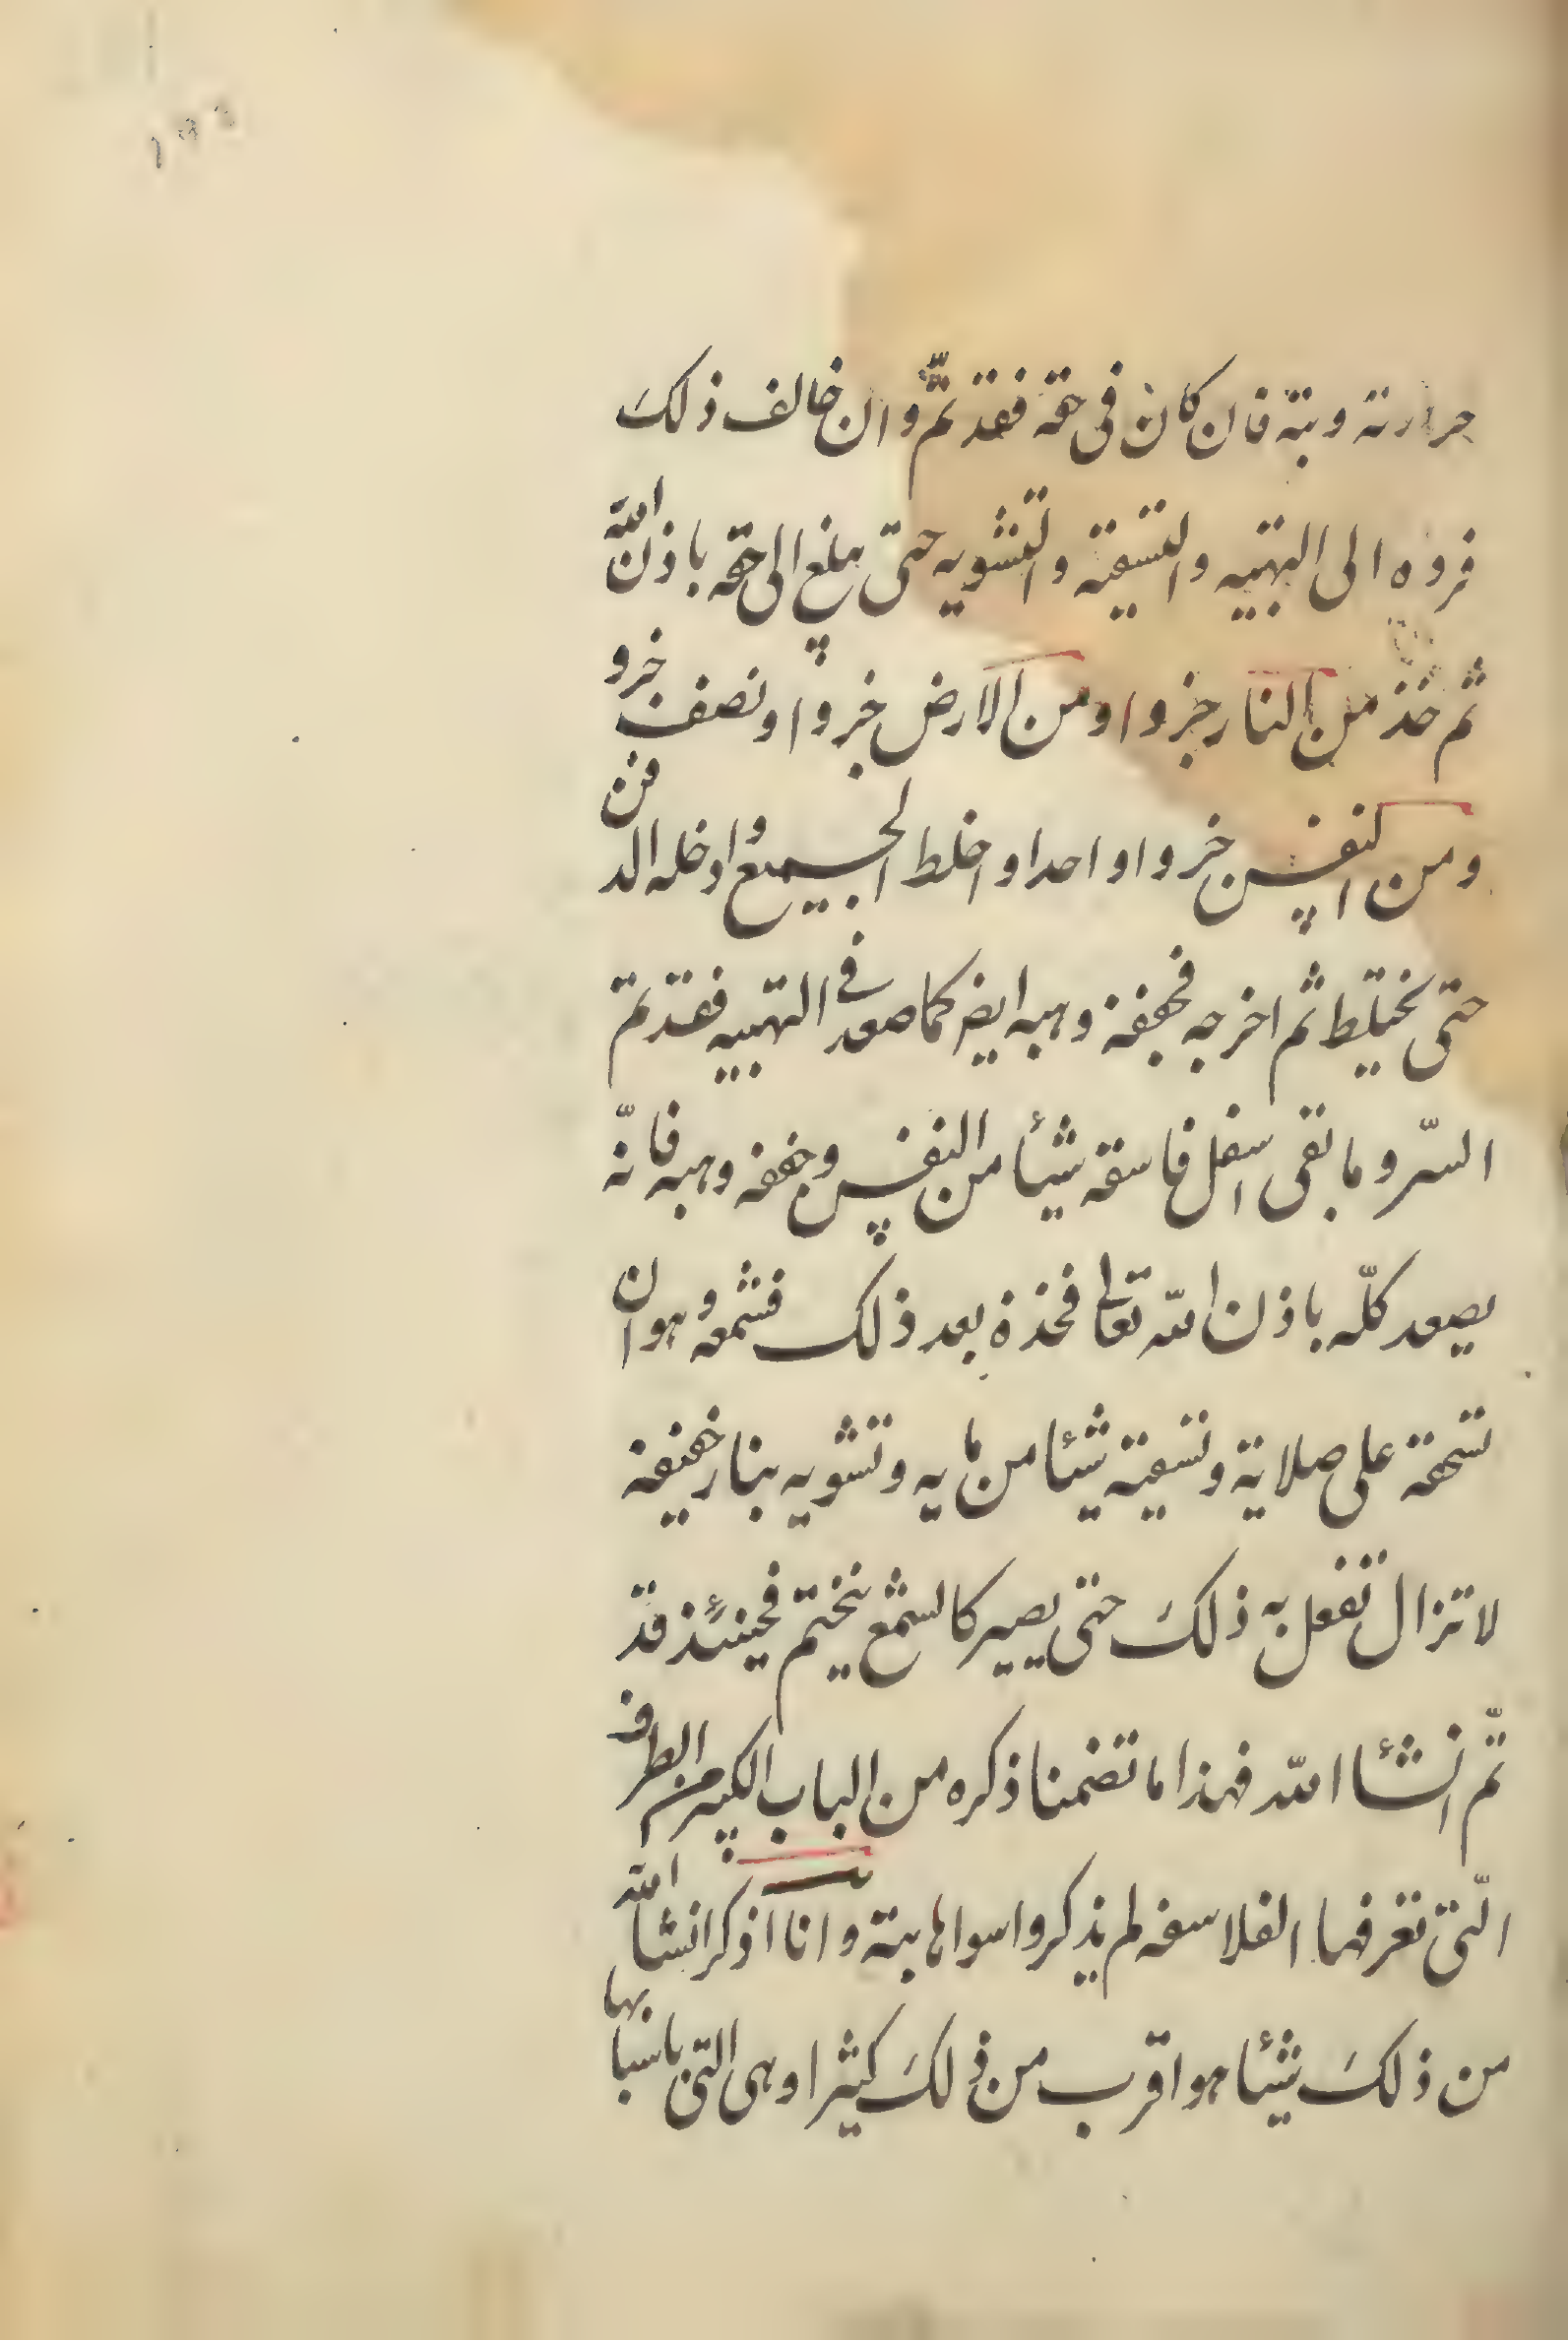 حرارته وبته فان كان فى حقه فقد تمّ وان خالف ذلك
فروه الى التهبيه والتسقية والتشويه حتى يبلغ الى حقه باذن الله
ثم خذ من النار جزوا ومن الارض جزوا ونصف جزو
ومن النفس جزوا واحدا واخلط الجميع وادخله الدفن
حتى يختلط ثم اخرجه فجففه وهبه ايضر كما صعد في التهبيه فقد تم
السّر وما بقى اسفل فاسقه شيئا من النفس وجففه وهبه فانّه
يصعد كلّه باذن الله تعالى فخذه بعد ذلك فشمعه وهو ان
تسحقه على صلاية وتسقيته شيئا من مايه وتشويه بنار خفيفه
لا تزال تفعل به ذلك حتى يصير كالشمع يختم فحينئذ قد
تمّ انشئا الله فهذا ما تضمنا ذكره من الباب الكبير من الطرف
الّتى تعرفها الفلاسفه لم يذكروا سواها بتة وانا اذكر انشا الله
من ذلك شيئا هو اقرب من ذلك كثيرا وهى التى باسبابها